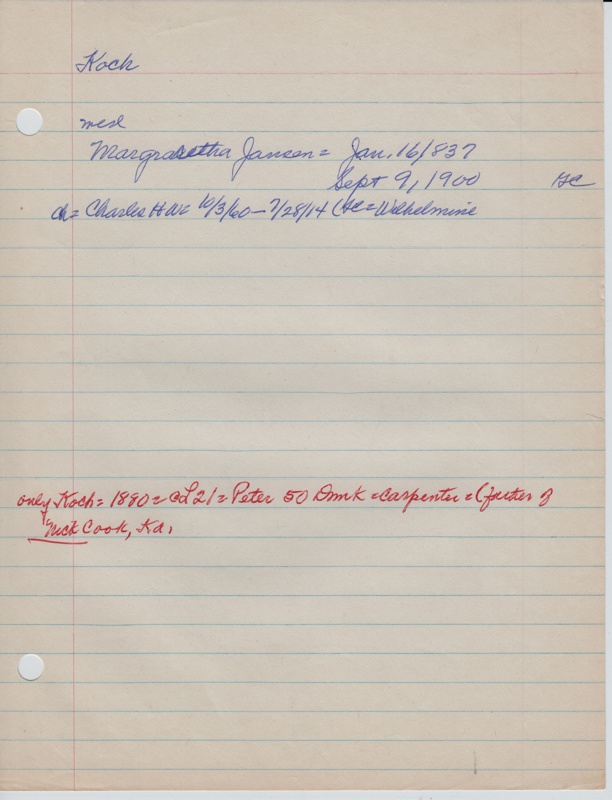 Koch
med
Margraretha Jansen = Jan. 16/837
Sept 9, 1900 HC
ch = Charles H W = 10/3/60 - 7/28/14 (HC = Wilhelmine
only Koch = 1880 = CL 21 = Peter 50 Dmrk = carpenter = (father of
Nick Cook, Ka,